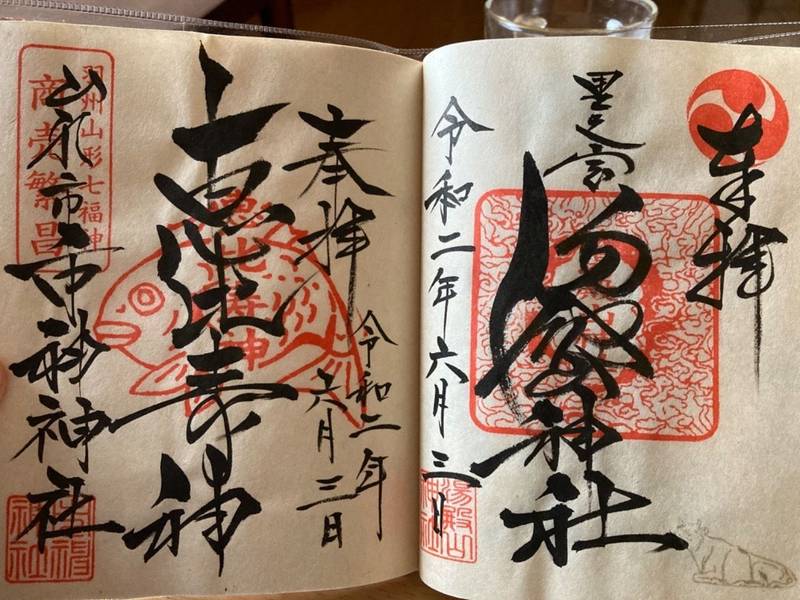 奉拝
里之宮
湯殿山神社
令和二年六月三日
湯殿山
神社
奉拝
令和二年
六月三日
恵比寿神
恵比寿神
羽州山形七福神
商売繁昌
山形市市神神社